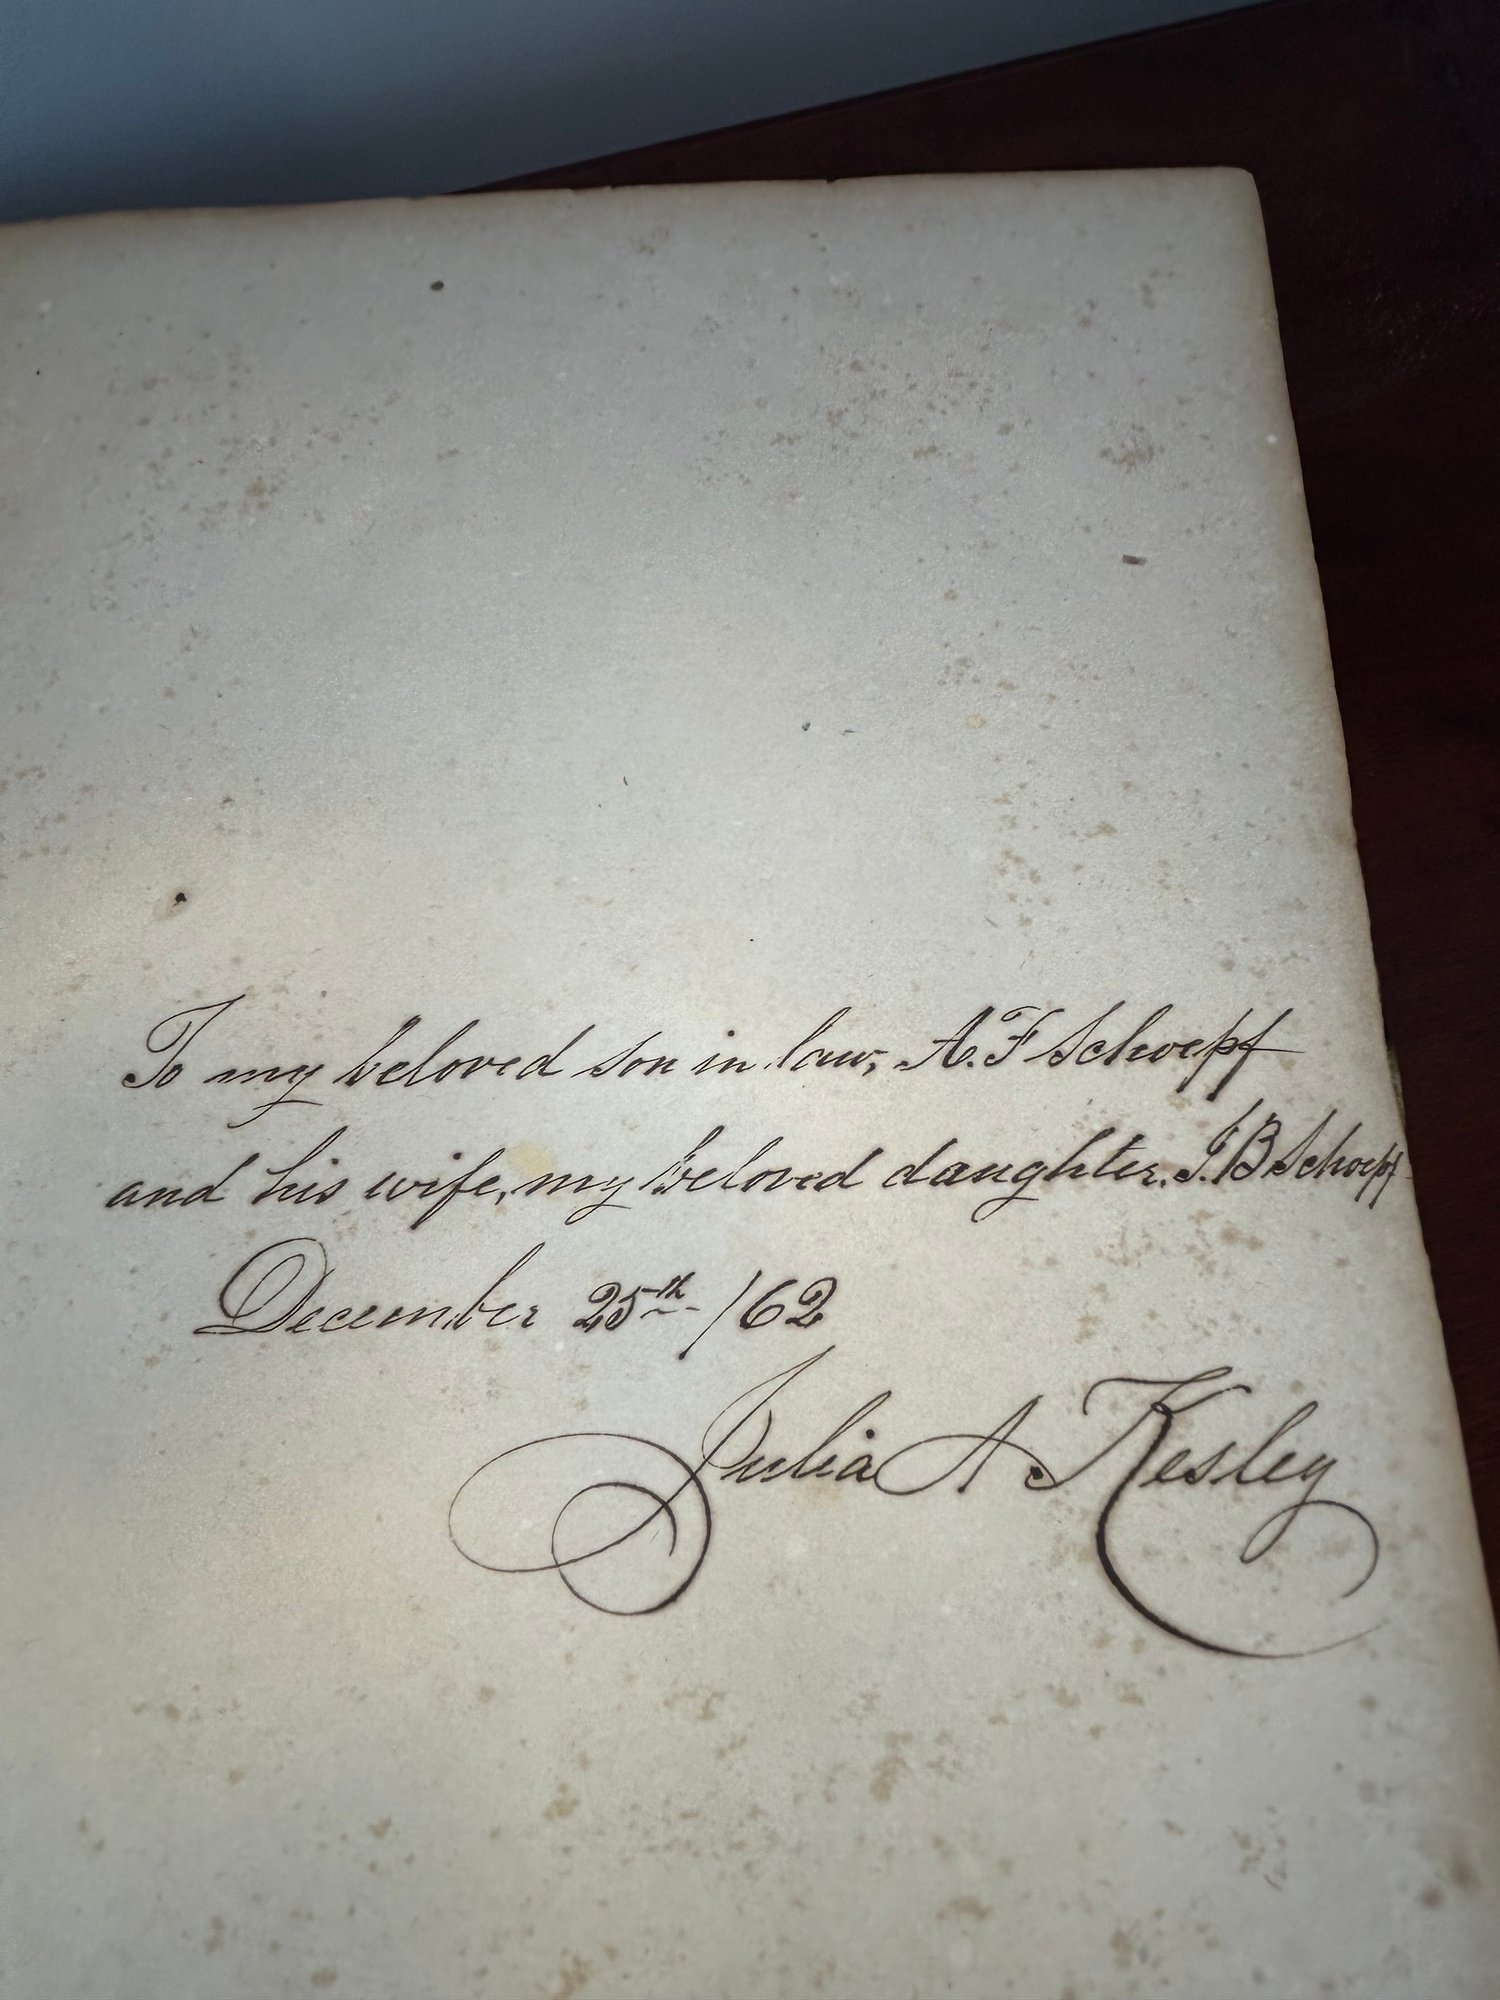 To my beloved son in law, A.F Schoepf
and his wife, my beloved daughter. J.B Schoepf
December 25th /62
Julia A Kesley